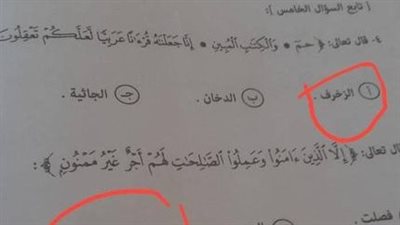 [ تابع السؤال الخامس ]:
٤- قال تعالى: ﴿ حمٓ • وَٱلْكِتَٰبِ ٱلْمُبِينِ • إِنَّا جَعَلْنَٰهُ قُرْءَٰنًا عَرَبِيًّا لَّعَلَّكُمْ تَعْقِلُونَ
أ الزخرف . ب الدخان . جـ الجاثية .
قال تعالى: ﴿ إِلَّا ٱلَّذِينَ ءَامَنُوا۟ وَعَمِلُوا۟ ٱلصَّٰلِحَٰتِ لَهُمْ أَجْرٌ غَيْرُ مَمْنُونٍ ﴾:
فصلت .